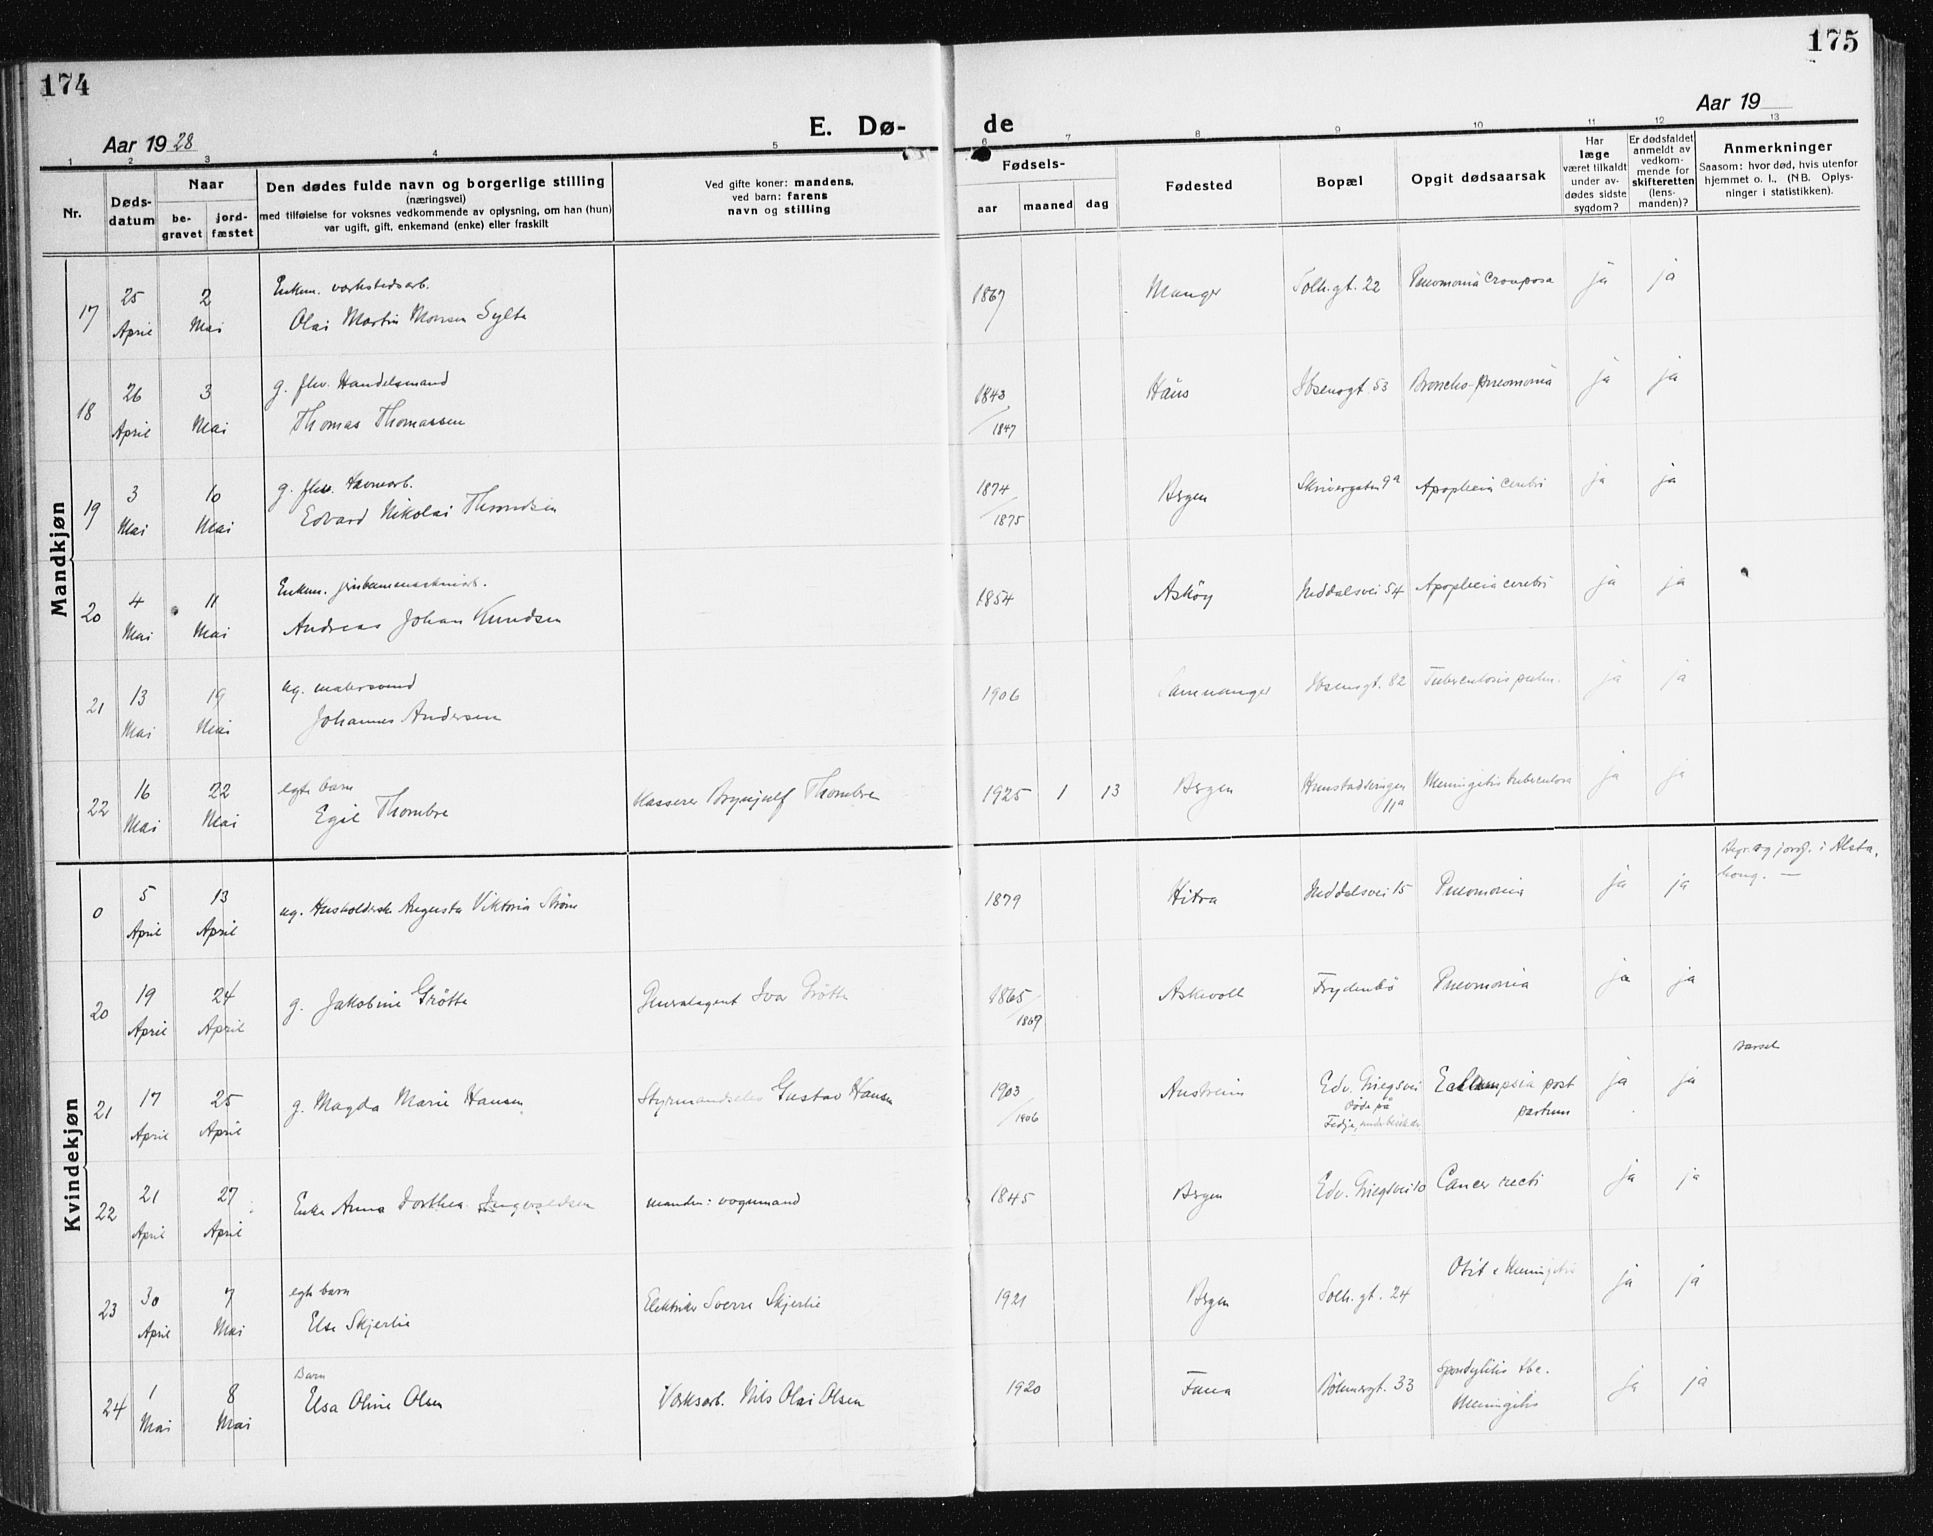 174
175
Aar 1928
E. Dø-
de
Aar 19
1 2 3 4 5 6 7 8 9 10 11 12 13
Nr.
Døds-
datum
Naar
be-
gravet
jord-
fæstet
Den dødes fulde navn og borgerlige stilling
(næringsvei)
med tilføielse for voksnes vedkommende av oplysning, om han (hun)
var ugift, gift, enkemand (enke) eller fraskilt
Ved gifte koner: mandens,
ved barn: farens
navn og stilling
Fødsels-
aar maaned dag
Fødested
Bopæl
Opgit dødsaarsak
Har
læge
været tilkaldt
under av-
dødes sidste
sygdom?
Er dødsfaldet
anmeldt av
vedkom-
mende for
skifteretten
(lens-
manden)?
Anmerkninger
Saasom: hvor død, hvis utenfor
hjemmet o. l., (NB. Oplys-
ninger i statistikken).
Mandkjøn
17 25 April 2 Mai
Enkem. verkstedsarb.
Olai Martin Monsen Sylta
1867 Manger Solh.gt. 22 Pneumonia crouposa ja ja
18 26 April 3 Mai
g. fhv. Handelsmand
Thomas Thomassen
1843/1847 Haus Ibsensgt. 53 Broncho-pneumonia ja ja
19 3 Mai 10 Mai
g. fhv. Havnearb.
Edvard Nikolai Thmundsen
1874/1875 Bergen Skivergaten 9a Apoplexia cerebri ja ja
20 4 Mai 11 Mai
Enkem.
Andreas Johan Knudsen
1854 Askøy Inddalsvei 54 Apoplexia cerebri ja ja
21 13 Mai 19 Mai
ug. malersvend
Johannes Andersen
1906 Samnanger Ibsensgt. 82 Tuberculosis pulm. ja ja
22 16 Mai 22 Mai
egte barn
Egil Thombre
Kasserer Brynjulf Thombre
1925 1 13 Bergen 11a Meningitis tuberculosa ja ja
Kvindekjøn
0 5 April 13 April
ug. Husholdersk. Augusta Viktoria Strøm
1879 Hitra Inddalsvei 15 Pneumonia ja ja
Begr. og jordf. i Alsta-
houg. —
20 19 April 24 April
g. Jakobine Grøtte
Generalagent Ivar Grøtte
1865/1869 Askevoll Frydenbø Pneumonia ja ja
21 17 April 25 April
g. Magda Marie Hansen
Styrmandselev Gustav Hansen
1903/1906 Austreim Edv. Griegsvei
Døde på
Fedje,
Eclampsia post
partum ja ja
Barsel
22 21 April 27 April
Enke Anna Dorthea Ingvaldsen
manden: vognmand
1845 Bergen Edv. Griegsvei 10 Cancer recti ja ja
23 30 April 7 Mai
egte barn
Else Skjerlie
Elektriker Sverre Skjerlie
1921 Bergen Solh. gt. 24 Otit & Meningitis ja ja
24 1 Mai 8 Mai
Barn
Elsa Oline Olsen
Verksarb. Nils Olai Olsen
1920 Fana Bøhmergt. 33 Spondylitis tbc.
Meningitis ja ja